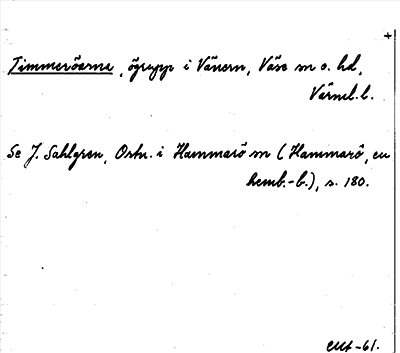 +
Timmeröarna, ögrupp i Vänern, Väse sn o. hd,
Värml. l.
Se J. Sahlgren, Ortn. i Hammarö sn (Hammarö, en
hemb.-b.), s. 180.
-61.